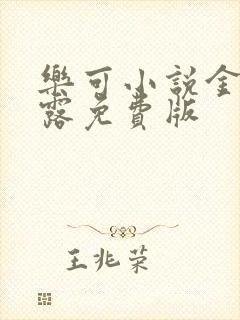 樂可小說金
露免費版
王兆荣